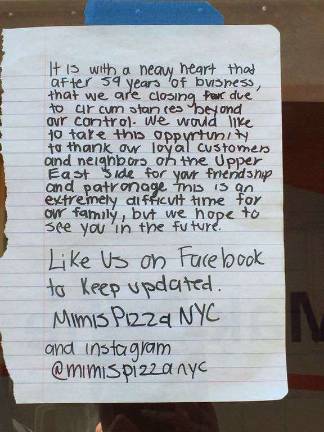 It is with a heavy heart that
after 59 years of buisness,
that we are closing due
to circumstances beyond
our control. We would like
to take this oppurtunity
to thank our loyal customers
and neighbors on the Upper
East Side for your friendship
and patronage This is an
extremely difficult time for
our family, but we hope to
see you in the future.
Like Us on Facebook
to Keep updated.
MimisPizzaNYC
and instagram
@mimispizzanyc